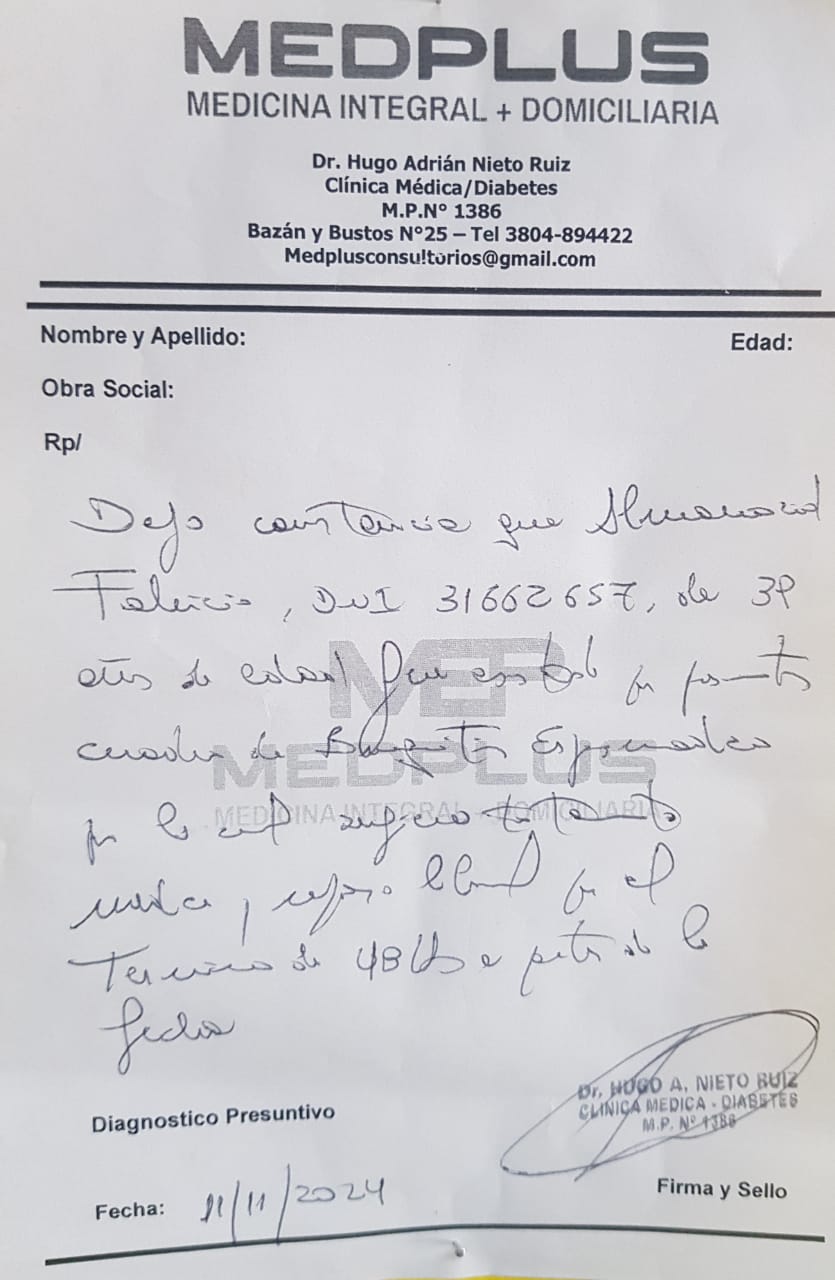 MEDPLUS
MEDICINA INTEGRAL + DOMICILIARIA
Dr. Hugo Adrián Nieto Ruiz
Clínica Médica/Diabetes
M.P.N° 1386
Bazán y Bustos N°25 – Tel 3804-894422
Medplusconsultorios@gmail.com
Nombre y Apellido:
Edad:
Obra Social:
Rp/
Dejo constancia que
Fabricio, DNI 31662657, de 39
años de edad por
cuadro de
MEDPLUS
MEDICINA INTEGRAL + DOMICILIARIA
por lo cual sugiero tratamiento
médico y reposo laboral por el
Termino de 48 Hs a partir de la
fecha
Dr. HUGO A. NIETO RUIZ
CLINICA MEDICA - DIABETES
M.P. N° 1386
Diagnostico Presuntivo
Firma y Sello
Fecha: 11/11/2024